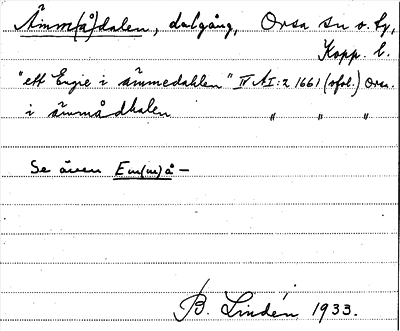 Ämm(å)dalen, dalgång, Orsa sn o. tg,
Kopp. l.
"ett Engie i ämmedahlen" IV AI:2 1661 (ofol.) Orsa.
i ämmådhalen " " "
Se även Em(m)å-
B. Lindén 1933.